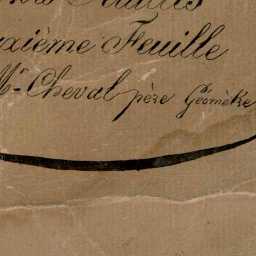 xième Feuille
Mr Cheval père Géomètre